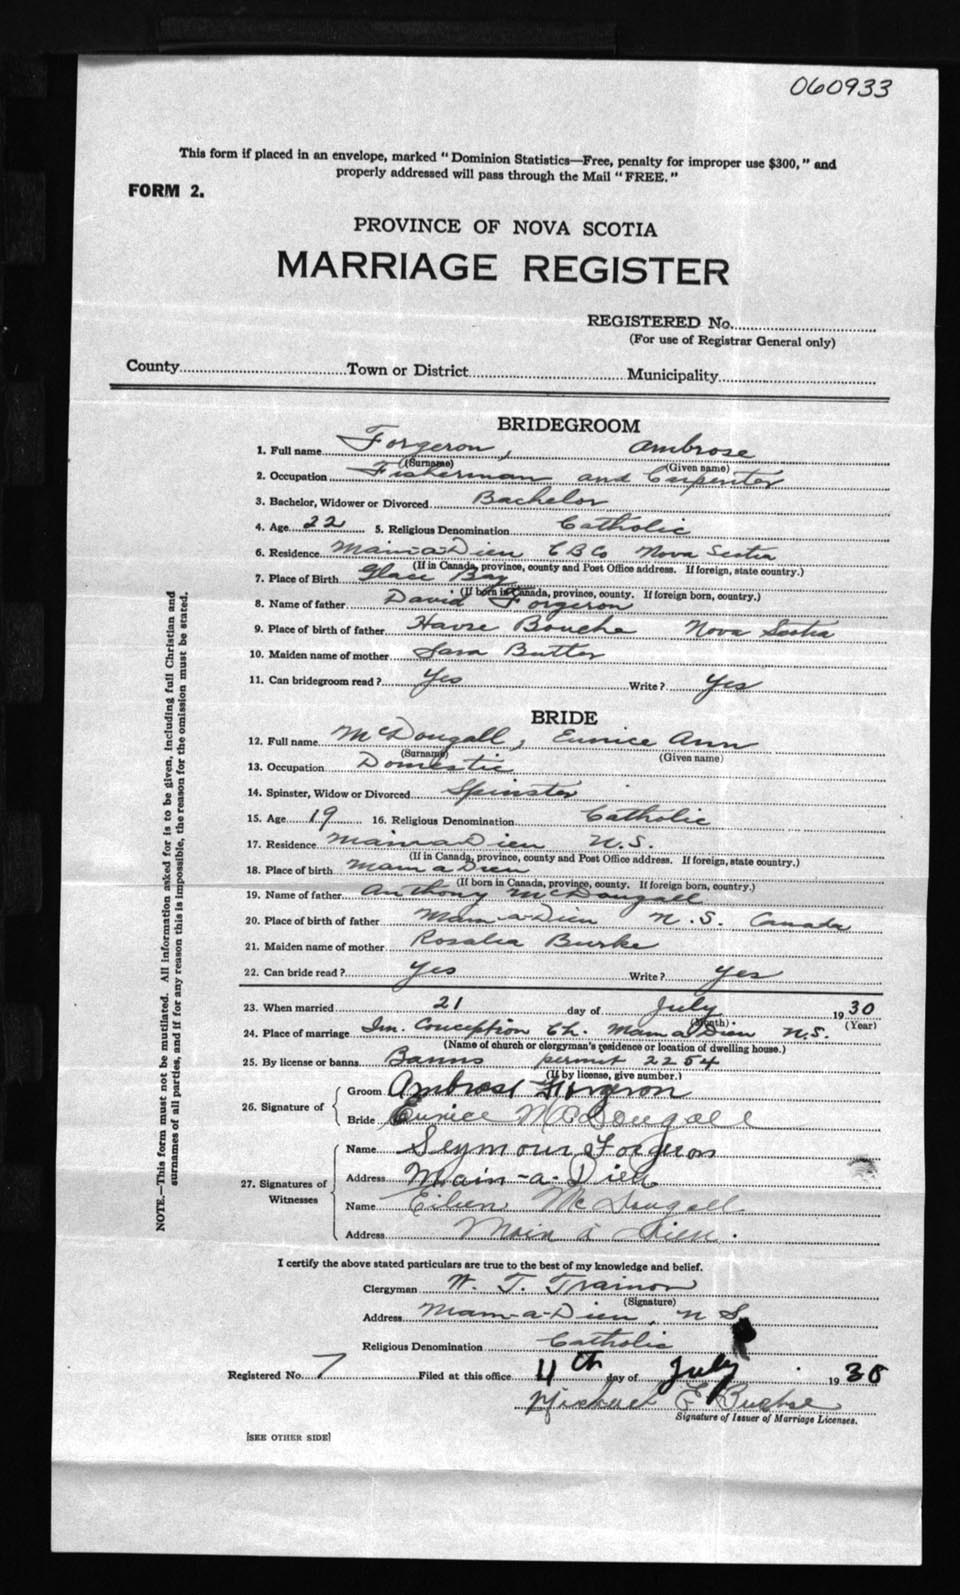 060933
This form if placed in an envelope, marked "Dominion Statistics—Free, penalty for improper use $300," and
properly addressed will pass through the Mail "FREE."
FORM 2.
PROVINCE OF NOVA SCOTIA
MARRIAGE REGISTER
REGISTERED No.
(For use of Registrar General only)
County Town or District Municipality
BRIDEGROOM
1. Full name Forgeron, Ambrose
(Surname) (Given name)
2. Occupation Fisherman and Carpenter
3. Bachelor, Widower or Divorced Bachelor
4. Age 22 5. Religious Denomination Catholic
6. Residence Main a Dieu C B Co Nova Scotia
(If in Canada, province, county and Post Office address. If foreign, state country.)
7. Place of Birth Glace Bay
(If born in Canada, province, county. If foreign born, country.)
8. Name of father David Forgeron
9. Place of birth of father Havre Bouche Nova Scotia
10. Maiden name of mother Sara Butler
11. Can bridegroom read? Yes Write? Yes
BRIDE
12. Full name McDougall, Eunice Ann
(Surname) (Given name)
13. Occupation Domestic
14. Spinster, Widow or Divorced Spinster
15. Age 19 16. Religious Denomination Catholic
17. Residence Main a Dieu N.S.
(If in Canada, province, county and Post Office address. If foreign, state country.)
18. Place of birth Main a Dieu
(If born in Canada, province, county. If foreign born, country.)
19. Name of father Anthony McDougall
20. Place of birth of father Main-a-Dieu N.S. Canada
21. Maiden name of mother Rosalia Burke
22. Can bride read? Yes Write? Yes
23. When married 21 day of July 1930
(Month) (Year)
24. Place of marriage Im. Conception Ch. Main a Dieu N.S.
(Name of church or clergyman's residence or location of dwelling house.)
25. By license or banns Banns permit 2254
(If by license, give number.)
26. Signature of Groom Ambrose Forgeron
Bride Eunice McDougall
27. Signatures of Witnesses Name Seymour Forgeron
Address Main-a-Dieu
Name Eileen McDougall
Address Main a Dieu.
I certify the above stated particulars are true to the best of my knowledge and belief.
Clergyman W. T. Trainor
(Signature)
Address Main-a-Dieu, N S.
Religious Denomination Catholic
Registered No. 7 Filed at this office 4th day of July 1930
Michael F
Signature of Issuer of Marriage Licenses.
[SEE OTHER SIDE]
NOTE.—This form must not be mutilated. All information asked for is to be given, including full Christian and
surnames of all parties, and if for any reason this is impossible, the reason for the omission must be stated.